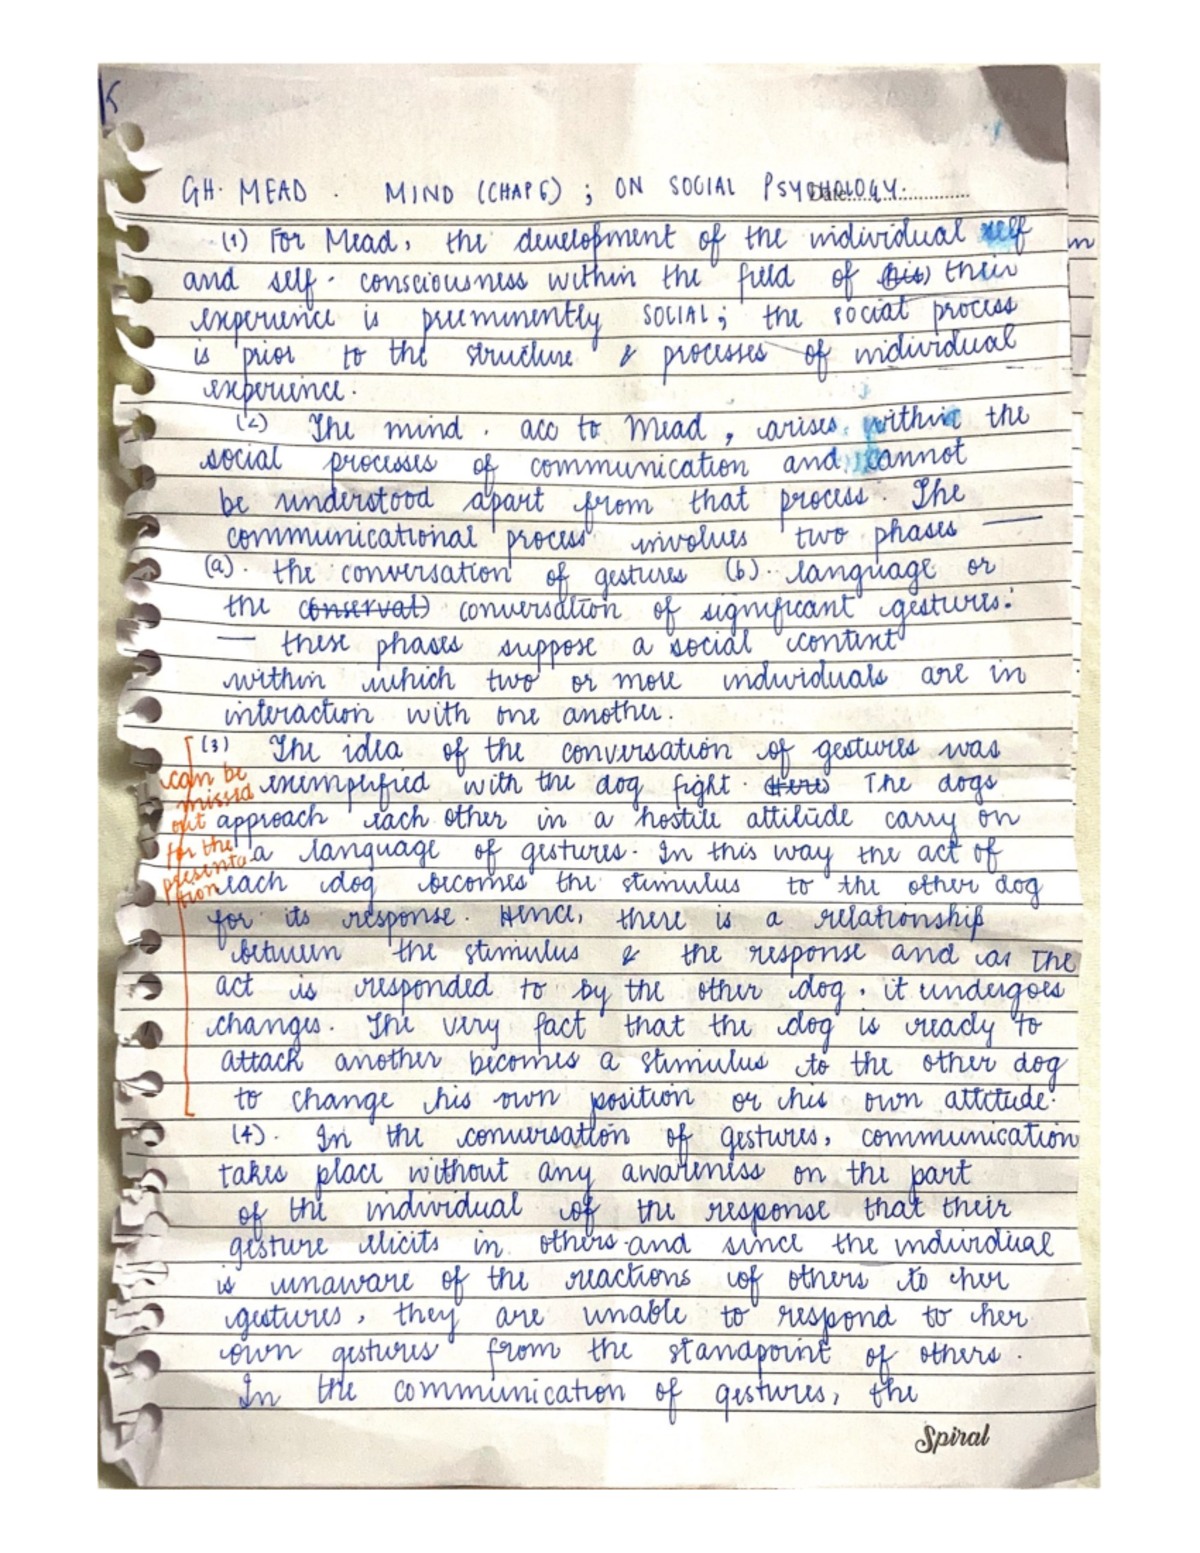 K
GH. MEAD. MIND (CHAP 6) ; ON SOCIAL PSYCHOLOGY.
Date:
(1) For Mead, the development of the individual self
and self-consciousness within the field of (his) their
experience is preeminently SOCIAL; the social process
is prior to the structure & processes of individual
experience.
(2) The mind. acc to Mead, arises within the
social processes of communication and cannot
be understood apart from that process. The
communicational process involves two phases —
(a). the conversation of gestures (b). language or
the conservat) conversation of significant gestures.
— these phases suppose a social context
within which two or more individuals are in
interaction with one another.
(3) The idea of the conversation of gestures was
exemplified with the dog fight. Here The dogs
approach each other in a hostile attitude carry on
a language of gestures. In this way the act of
each dog becomes the stimulus to the other dog
for its response. Hence, there is a relationship
between the stimulus & the response and as the
act is responded to by the other dog, it undergoes
changes. The very fact that the dog is ready to
attack another becomes a stimulus to the other dog
to change his own position or his own attitude.
can be
missed
out
for the
presenta
tion
(4). In the conversation of gestures, communication
takes place without any awareness on the part
of the individual of the response that their
gesture elicits in others and since the individual
is unaware of the reactions of others to her
gestures, they are unable to respond to her
own gestures from the standpoint of others.
In the communication of gestures, the
Spiral